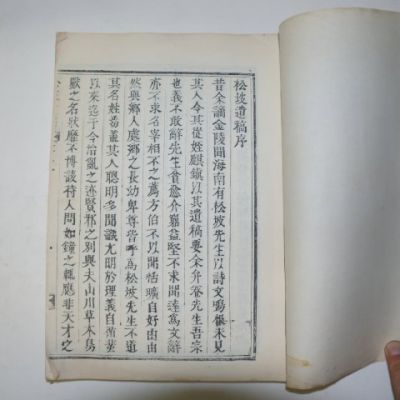 松坡遺稿序
昔余謫金陵聞海南有松坡先生以詩文鳴恨未見
其人今其從姪麒鎮以其遺稿要余弁卷先生吾宗
也義不敢辭先生貧愈介窮益堅不求聞達爲文辭
亦不求名宰相不之薦方伯不以聞恬曠自好由由
然與鄉人處鄉之長幼卑尊皆呼爲松坡先生不道
其名姓蓋重其人聰明多聞識尤明於理義自循蜚
以來迄于今治亂之迹賢邪之別與夫山川草木鳥
獸之名狀靡不博該待人問如鐘之輒應非天才之